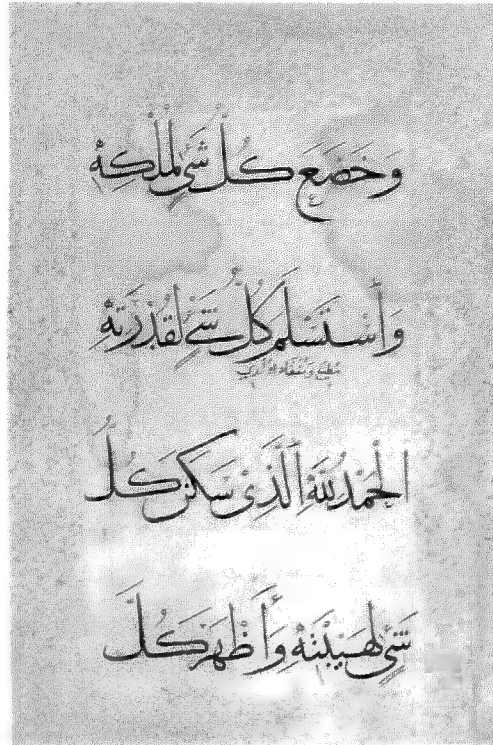 وَخَضَعَ كُلُّ شَيْءٍ لِمُلْكِهِ
وَأَسْتَسْلَمَ كُلُّ شَيْءٍ لِقُدْرَتِهِ
مطیع
اَلْحَمْدُ لِلّٰهِ الَّذِيْ سَكَنَ كُلُّ
شَيْءٍ لِهَيْبَتِهِ وَأَظْهَرَ كُلَّ